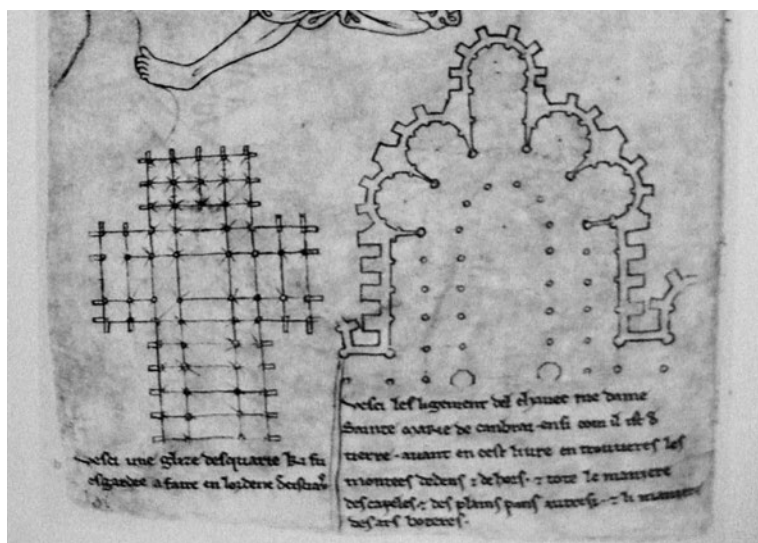 Vesci une glize desquarie ki fu
esgardee a faire en lordene decistiaus
Vesci les ligement del chavec me dame
Sainte marie de canbrai ensi com il ist de
tierre . avant en cest livre en trouveres les
montees dedens ⁊ dehors . ⁊ tote le maniere
des capeles ⁊ des plains pans autresi . ⁊ li maniere
des ars boteres .